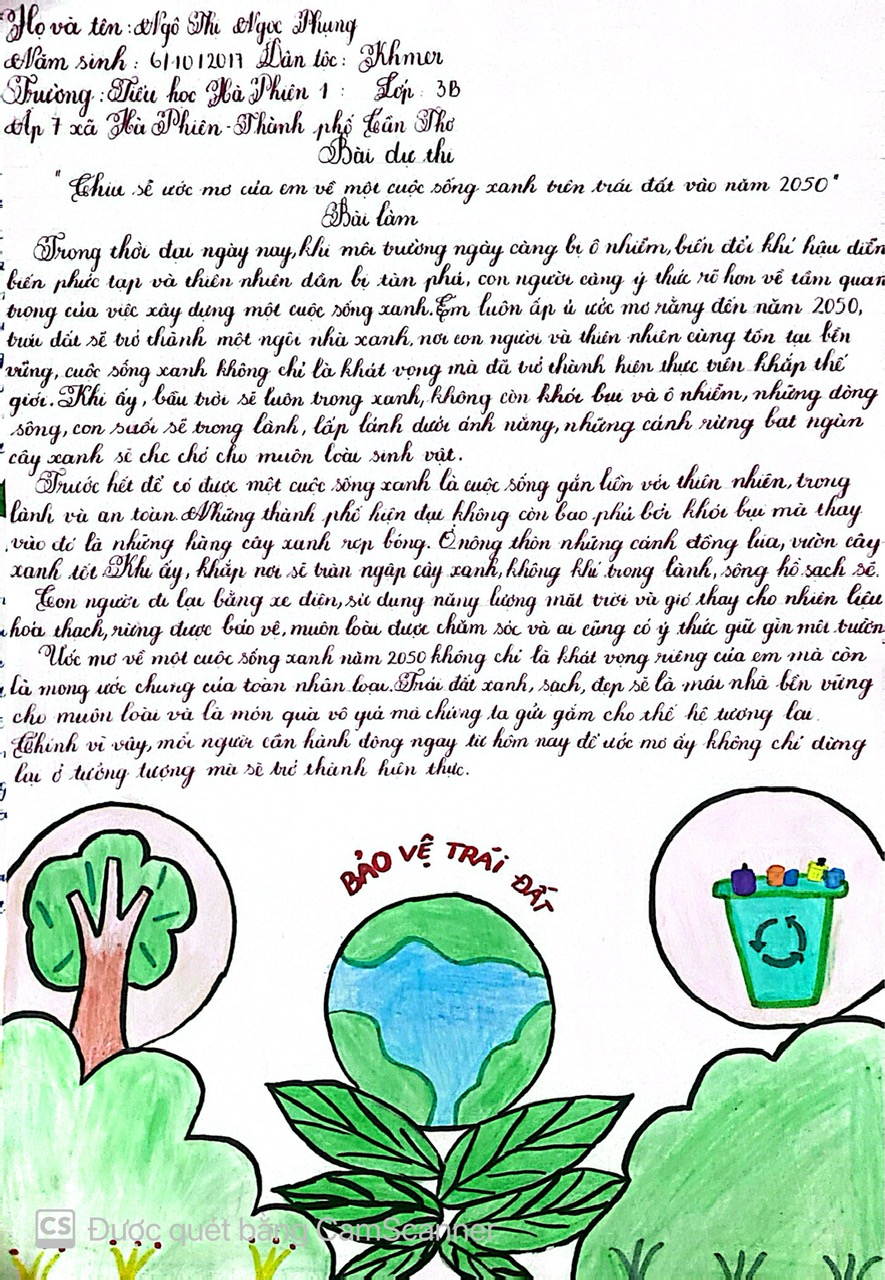 Họ và tên: Ngô Thị Ngọc Phụng
Năm sinh: 6/10/2017 Dân tộc: Khmer
Trường: Tiểu học Hà Phiên 1: Lớp: 3B
Ấp 7 xã Hà Phiên - Thành phố Cần Thơ
Bài dự thi
"Chia sẻ ước mơ của em về một cuộc sống xanh trên trái đất vào năm 2050"
Bài làm
Trong thời đại ngày nay, khi môi trường ngày càng bị ô nhiễm, biến đổi khí hậu diễn
biến phức tạp và thiên nhiên dần bị tàn phá, con người càng ý thức rõ hơn về tầm quan
trọng của việc xây dựng một cuộc sống xanh. Em luôn ấp ủ ước mơ rằng đến năm 2050,
trái đất sẽ trở thành một ngôi nhà xanh, nơi con người và thiên nhiên cùng tồn tại bền
vững, cuộc sống xanh không chỉ là khát vọng mà đã trở thành hiện thực trên khắp thế
giới. Khi ấy, bầu trời sẽ luôn trong xanh, không còn khói bụi và ô nhiễm, những dòng
sông, con suối sẽ trong lành, lấp lánh dưới ánh nắng, những cánh rừng bạt ngàn
cây xanh sẽ che chở cho muôn loài sinh vật.
Trước hết để có được một cuộc sống xanh là cuộc sống gắn liền với thiên nhiên, trong
lành và an toàn. Những thành phố hiện đại không còn bao phủ bởi khói bụi mà thay
vào đó là những hàng cây xanh rợp bóng. Ở nông thôn những cánh đồng lúa, vườn cây
xanh tốt. Khi ấy, khắp nơi sẽ tràn ngập cây xanh, không khí trong lành, sông hồ sạch sẽ.
Con người đi lại bằng xe điện, sử dụng năng lượng mặt trời và gió thay cho nhiên liệu
hóa thạch, rừng được bảo vệ, muôn loài được chăm sóc và ai cũng có ý thức giữ gìn môi trường
Ước mơ về một cuộc sống xanh năm 2050 không chỉ là khát vọng riêng của em mà còn
là mong ước chung của toàn nhân loại. Trái đất xanh, sạch, đẹp sẽ là mái nhà bền vững
cho muôn loài và là món quà vô giá mà chúng ta gửi gắm cho thế hệ tương lai.
Chính vì vậy, mỗi người cần hành động ngay từ hôm nay để ước mơ ấy không chỉ dừng
lại ở tưởng tượng mà sẽ trở thành hiện thực.
BẢO VỆ TRÁI ĐẤT
CS Được quét bằng CamScanner